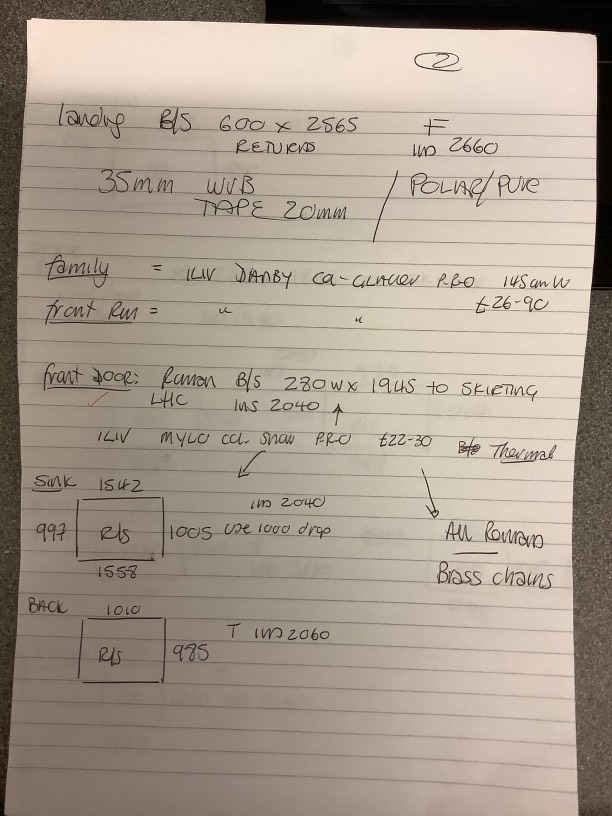 2
landing B/S 600 x 2565 F
RETURNS INS 2660
35mm WVB / POLAR/PURE
TAPE 20mm
family = ILIV DANBY Col- GLACIER PRO 145cm W
front Rm = " " £26-90
front DOOR: Roman B/S 280W x 1945 to SKIRTING
LHC INS 2040 ↑
ILIV MYLO Col. Snow PRO £22-30 Thermal
SINK 1542
INS 2040
997 R/S 1005 use 1000 drop All Romans
1558 Brass chains
BACK 1010
T INS 2060
R/S 985